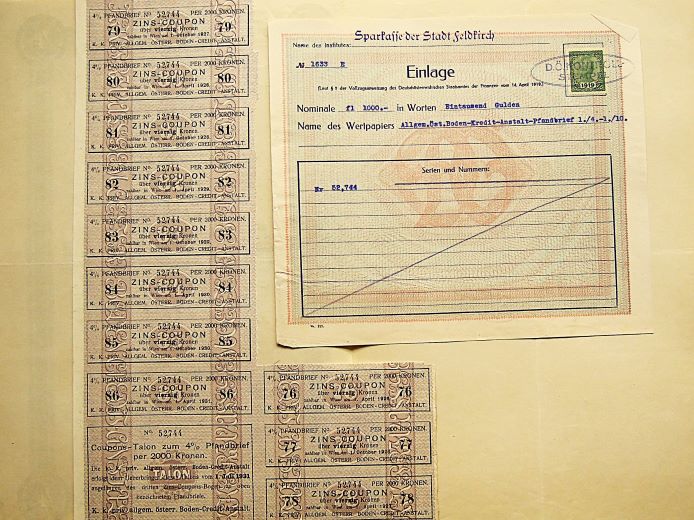 4% PFANDBRIEF No. 52744 PER 2000 KRONEN.
79 ZINS-COUPON 79
über vierzig Kronen
zahlbar in Wien am 1. October 1927.
K. K. PRIV. ALLGEM. ÖSTERR. BODEN-CREDIT-ANSTALT.
4% PFANDBRIEF No. 52744 PER 2000 KRONEN.
80 ZINS-COUPON 80
über vierzig Kronen
zahlbar in Wien am 1. April 1928.
K. K. PRIV. ALLGEM. ÖSTERR. BODEN-CREDIT-ANSTALT.
4% PFANDBRIEF No. 52744 PER 2000 KRONEN.
81 ZINS-COUPON 81
über vierzig Kronen
zahlbar in Wien am 1. October 1928.
K. K. PRIV. ALLGEM. ÖSTERR. BODEN-CREDIT-ANSTALT.
4% PFANDBRIEF No. 52744 PER 2000 KRONEN.
82 ZINS-COUPON 82
über vierzig Kronen
zahlbar in Wien am 1. April 1929.
K. K. PRIV. ALLGEM. ÖSTERR. BODEN-CREDIT-ANSTALT.
4% PFANDBRIEF No. 52744 PER 2000 KRONEN.
83 ZINS-COUPON 83
über vierzig Kronen
zahlbar in Wien am 1. October 1929.
K. K. PRIV. ALLGEM. ÖSTERR. BODEN-CREDIT-ANSTALT.
4% PFANDBRIEF No. 52744 PER 2000 KRONEN.
84 ZINS-COUPON 84
über vierzig Kronen
zahlbar in Wien am 1. April 1930.
K. K. PRIV. ALLGEM. ÖSTERR. BODEN-CREDIT-ANSTALT.
4% PFANDBRIEF No. 52744 PER 2000 KRONEN.
85 ZINS-COUPON 85
über vierzig Kronen
zahlbar in Wien am 1. October 1930.
K. K. PRIV. ALLGEM. ÖSTERR. BODEN-CREDIT-ANSTALT.
4% PFANDBRIEF No. 52744 PER 2000 KRONEN.
86 ZINS-COUPON 86
über vierzig Kronen
zahlbar in Wien am 1. April 1931.
K. K. PRIV. ALLGEM. ÖSTERR. BODEN-CREDIT-ANSTALT.
No. 52744
Coupons-Talon zum 4% Pfandbrief
per 2000 Kronen.
Die k. k. priv. allgem. österr. Boden-Credit-Anstalt
erfolgt dem Ueberbringer 1. Juli 1931
TALON
bezeichneten Pfandbriefe.
K. k. priv. allgem. österr. Boden-Credit-Anstalt.
Sparkasse der Stadt Feldkirch
Name des Institutes:
No 1633 E
Einlage
(Laut § 9 der Vollzugsanweisung des Deutschösterreichischen Staatsamtes der Finanzen vom 16 April 1919.)
1919
Nominale fl 1000.- in Worten Eintausend Gulden
Name des Wertpapiers Allgem.Öst.Boden-Kredit-Anstalt-Pfandbrief 1./4.-1./10.
Serien und Nummern:
Nr 52,744
4% PFANDBRIEF No. 52744 PER 2000 KRONEN.
76 ZINS-COUPON 76
über vierzig Kronen
zahlbar in Wien am 1. April 1926.
K. K. PRIV. ALLGEM. ÖSTERR. BODEN-CREDIT-ANSTALT.
4% PFANDBRIEF No. 52744 PER 2000 KRONEN.
77 ZINS-COUPON 77
über vierzig Kronen
zahlbar in Wien am 1. October 1926.
K. K. PRIV. ALLGEM. ÖSTERR. BODEN-CREDIT-ANSTALT.
4% PFANDBRIEF No. 52744 PER 2000 KRONEN.
78 ZINS-COUPON 78
über vierzig Kronen
zahlbar in Wien am 1. April 1927.
K. K. PRIV. ALLGEM. ÖSTERR. BODEN-CREDIT-ANSTALT.